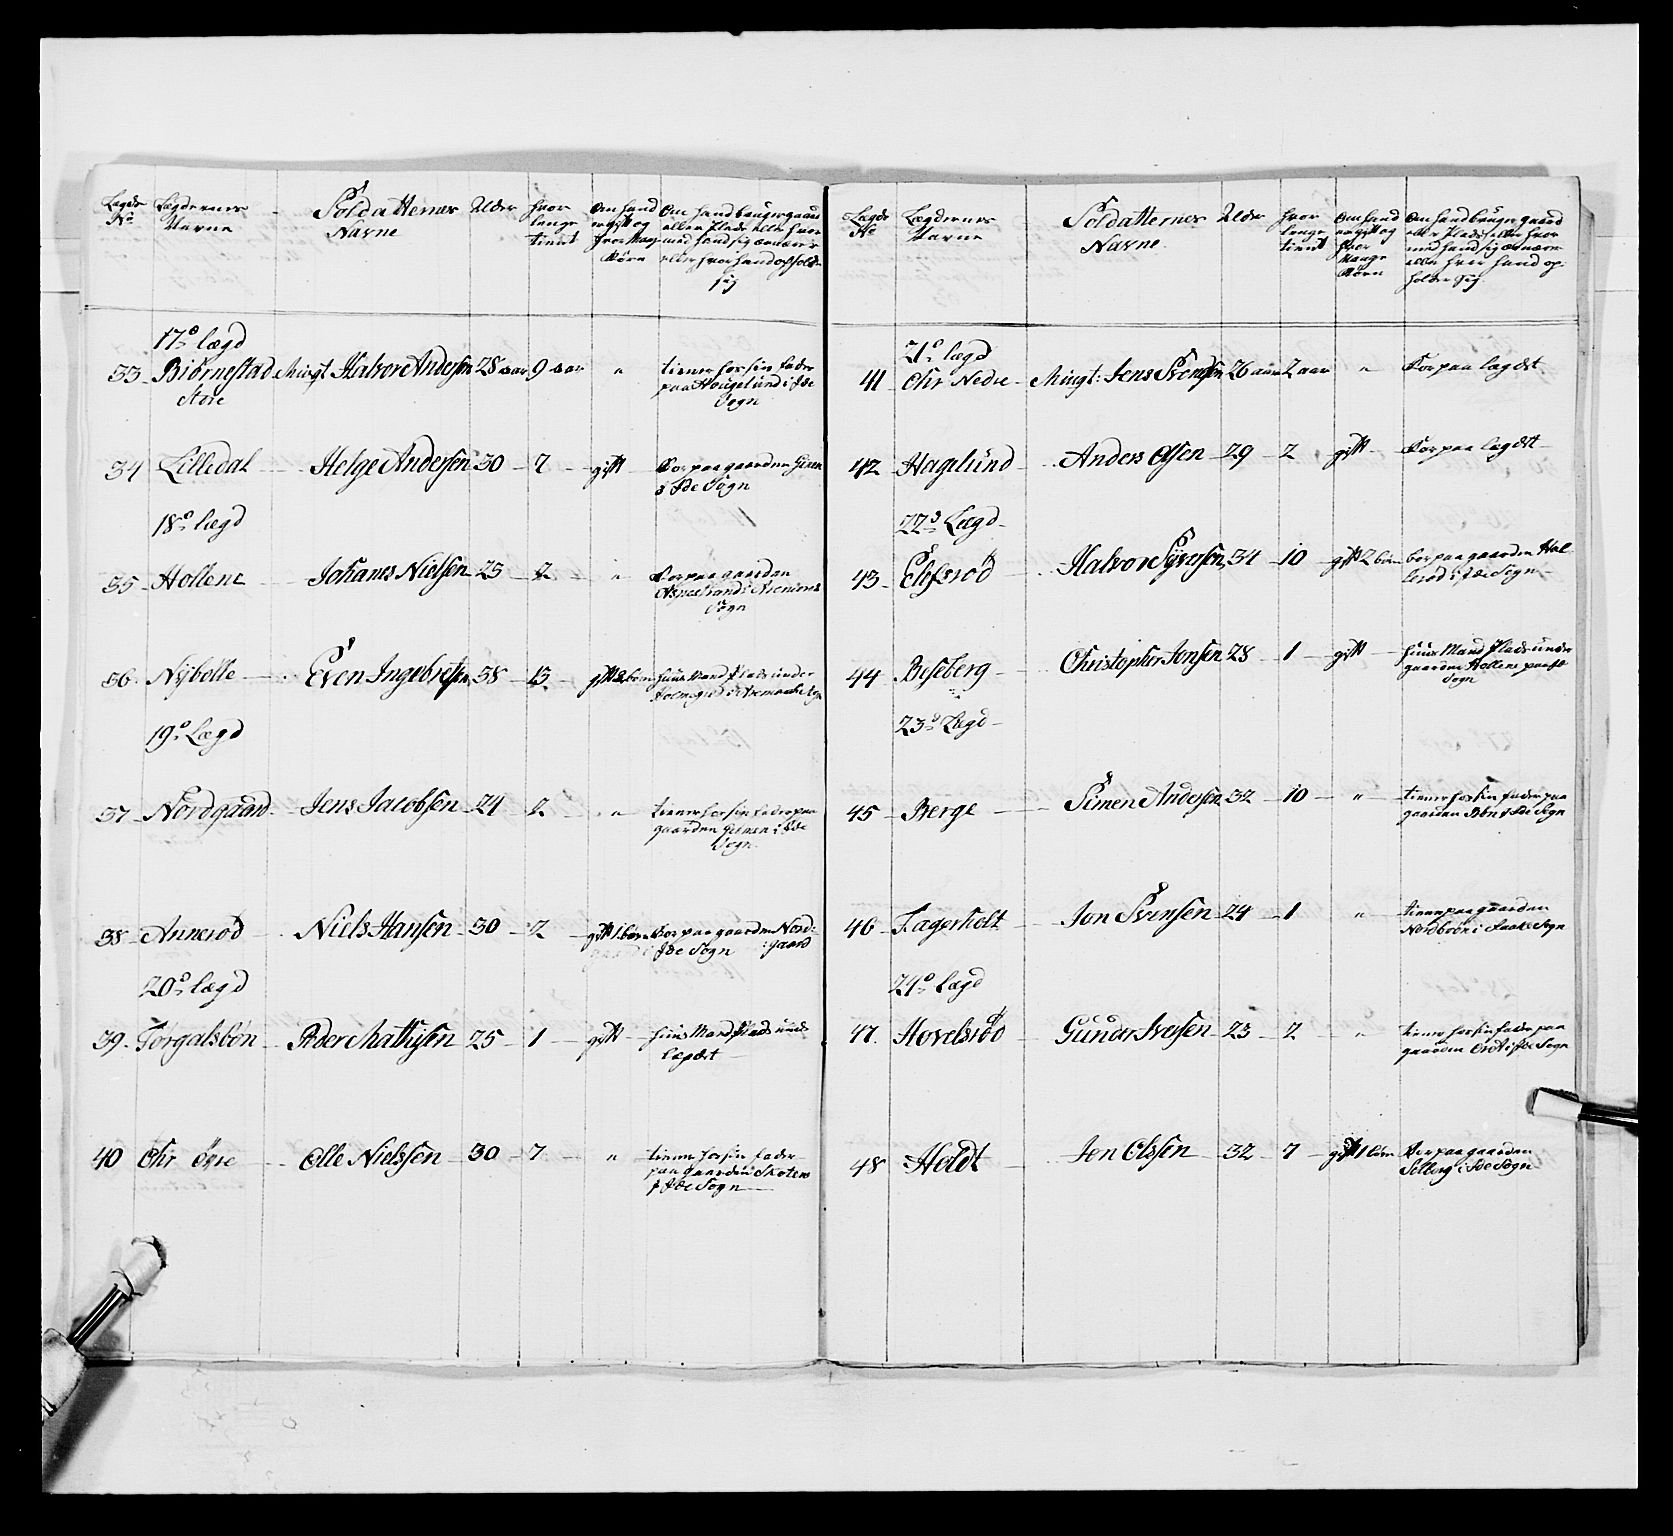 Lægds No
Lægdernes Navne
Soldatternes Navne
Alder
hvor lenge tient
Om hand er gift og hvor mange Børn
Om hand bruger gaard eller Plads eller hvor med hand sig ernærer eller hvor hand opholder sig
17de lægd
33 Biørnestad Store Mingt Halvor Andersen 28 aar 9 aar " tiener for sin fader
paa Hougelund i Ide
Sogn
34 Lilledal Helge Andersen 30 7 gift Boer paa gaarden
i Ide Sogn
18de lægd
35 Hollene Johanes Nielsen 25 2 " Boer paa gaarden
Sogn
36 Nÿbolle Even Ingebretsen 38 13 gift 2 børn huus Mand Plads under
19de Lægd
37 Nordgaard Jens Jacobsen 24 2 " tiener for sin fader paa
gaarden i Ide
Sogn
38 Annerød Niels Hansen 30 2 gift 1 barn Boer paa gaarden Nord:
i Ide Sogn :gaard
20de lægd
39 Torgalsbøn Peder Mathisen 25 1 gift huus Mand Plads under
læget
40 Ohr Øvre Olle Nielssen 30 7 " tiener for sin fader
paa gaarden Skoten
i Ide Sogn
Lægds No
Lægdernes Navne
Soldatternes Navne
Alder
hvor lenge tient
Om hand er gift og hvor Mange Børn
Om hand bruger gaard eller Plads eller hvor med hand sig ernærer eller hvor hand opholder sig
21de lægd
41 Ohr Nedre Mingt: Jens Svensen 26 aar 2 aar " Boer paa lægdet
42 Hagelund Anders Olsen 29 2 gift Boer paa lægdet
22de Lægd
43 Elefsrød Halvor Syversen 34 10 gift 2 børn boer paa gaarden Hal
lerød i Ide Sogn
44 Beseberg Christopher Jonsen 28 1 gift huus Mand Plads under
gaarden Hollene
Sogn
23de Lægd
45 Berge Simen Andersen 32 10 " tiener for sin fader paa
gaarden Bøn i Ide Sogn
46 Fagerholt Jon Svensen 24 1 " tiener paa gaarden
Nordbøen i Sogn
24de lægd
47 Hovelsrød Gunder Iversen 23 2 " tiener for sin fader paa
gaarden i Ide Sogn
48 Holdt Jon Olssen 32 7 gift 1 barn Boer paa gaarden
Solberg i Ide Sogn